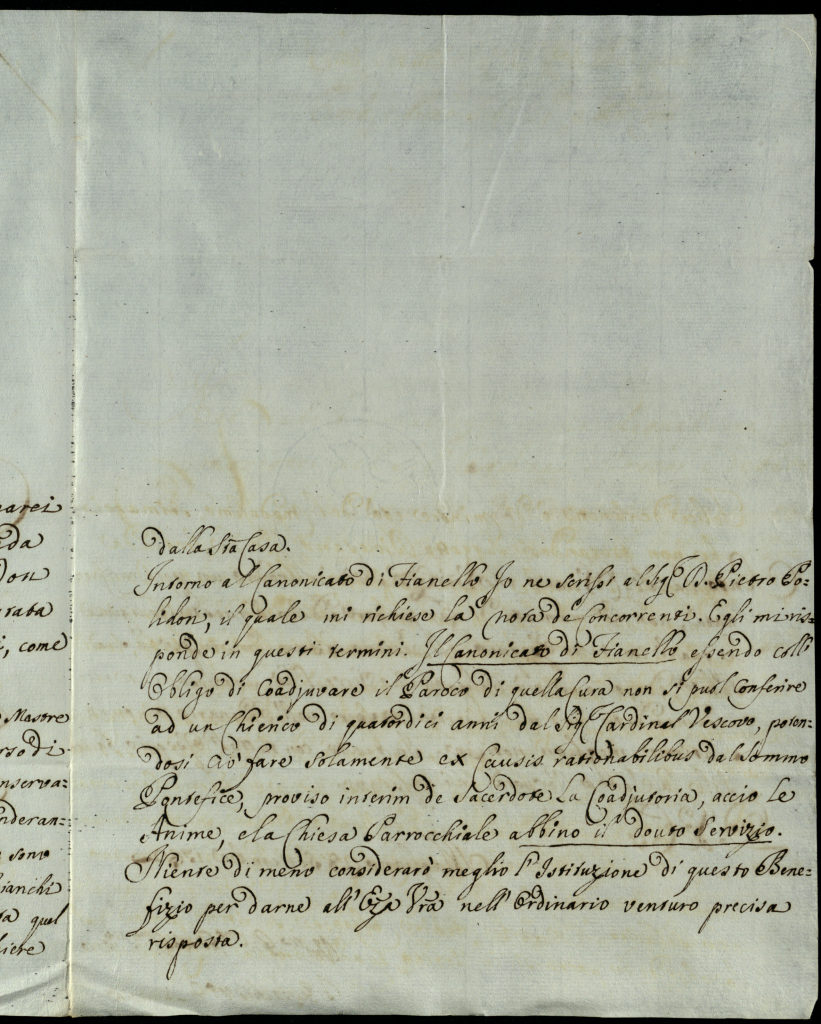 arei
da
Don
rata
i, come
Mastre
rso di
nserva=
nderan=
e sono
ianchi
ta quel
liere
dalla Sta Casa.
Intorno al Canonicato di Fianello Io ne scrissi al Sigr D. Pietro Po=
lidori, il quale mi richiese la nota de Concorrenti. Egli mi ris=
ponde in questi termini. Il Canonicato di Fianello essendo coll'
Obligo di Coadjuvare il Paroco di quella Cura non si puol Conferire
ad un Chierico di quatordici anni dal Sigr Cardinal Vescovo, poten=
dosi ciò fare solamente ex Causis rationabilibus dal Sommo
Pontefice, proviso interim de Sacerdote La Coadjutoria, acciò Le
Anime, e la Chiesa Parrocchiale abbino il douto Servizio.
Niente di meno considerarò meglio l'Istituzione di questo Bene=
fizio per darne all'Eza Vra nell'Ordinario venturo precisa
risposta.